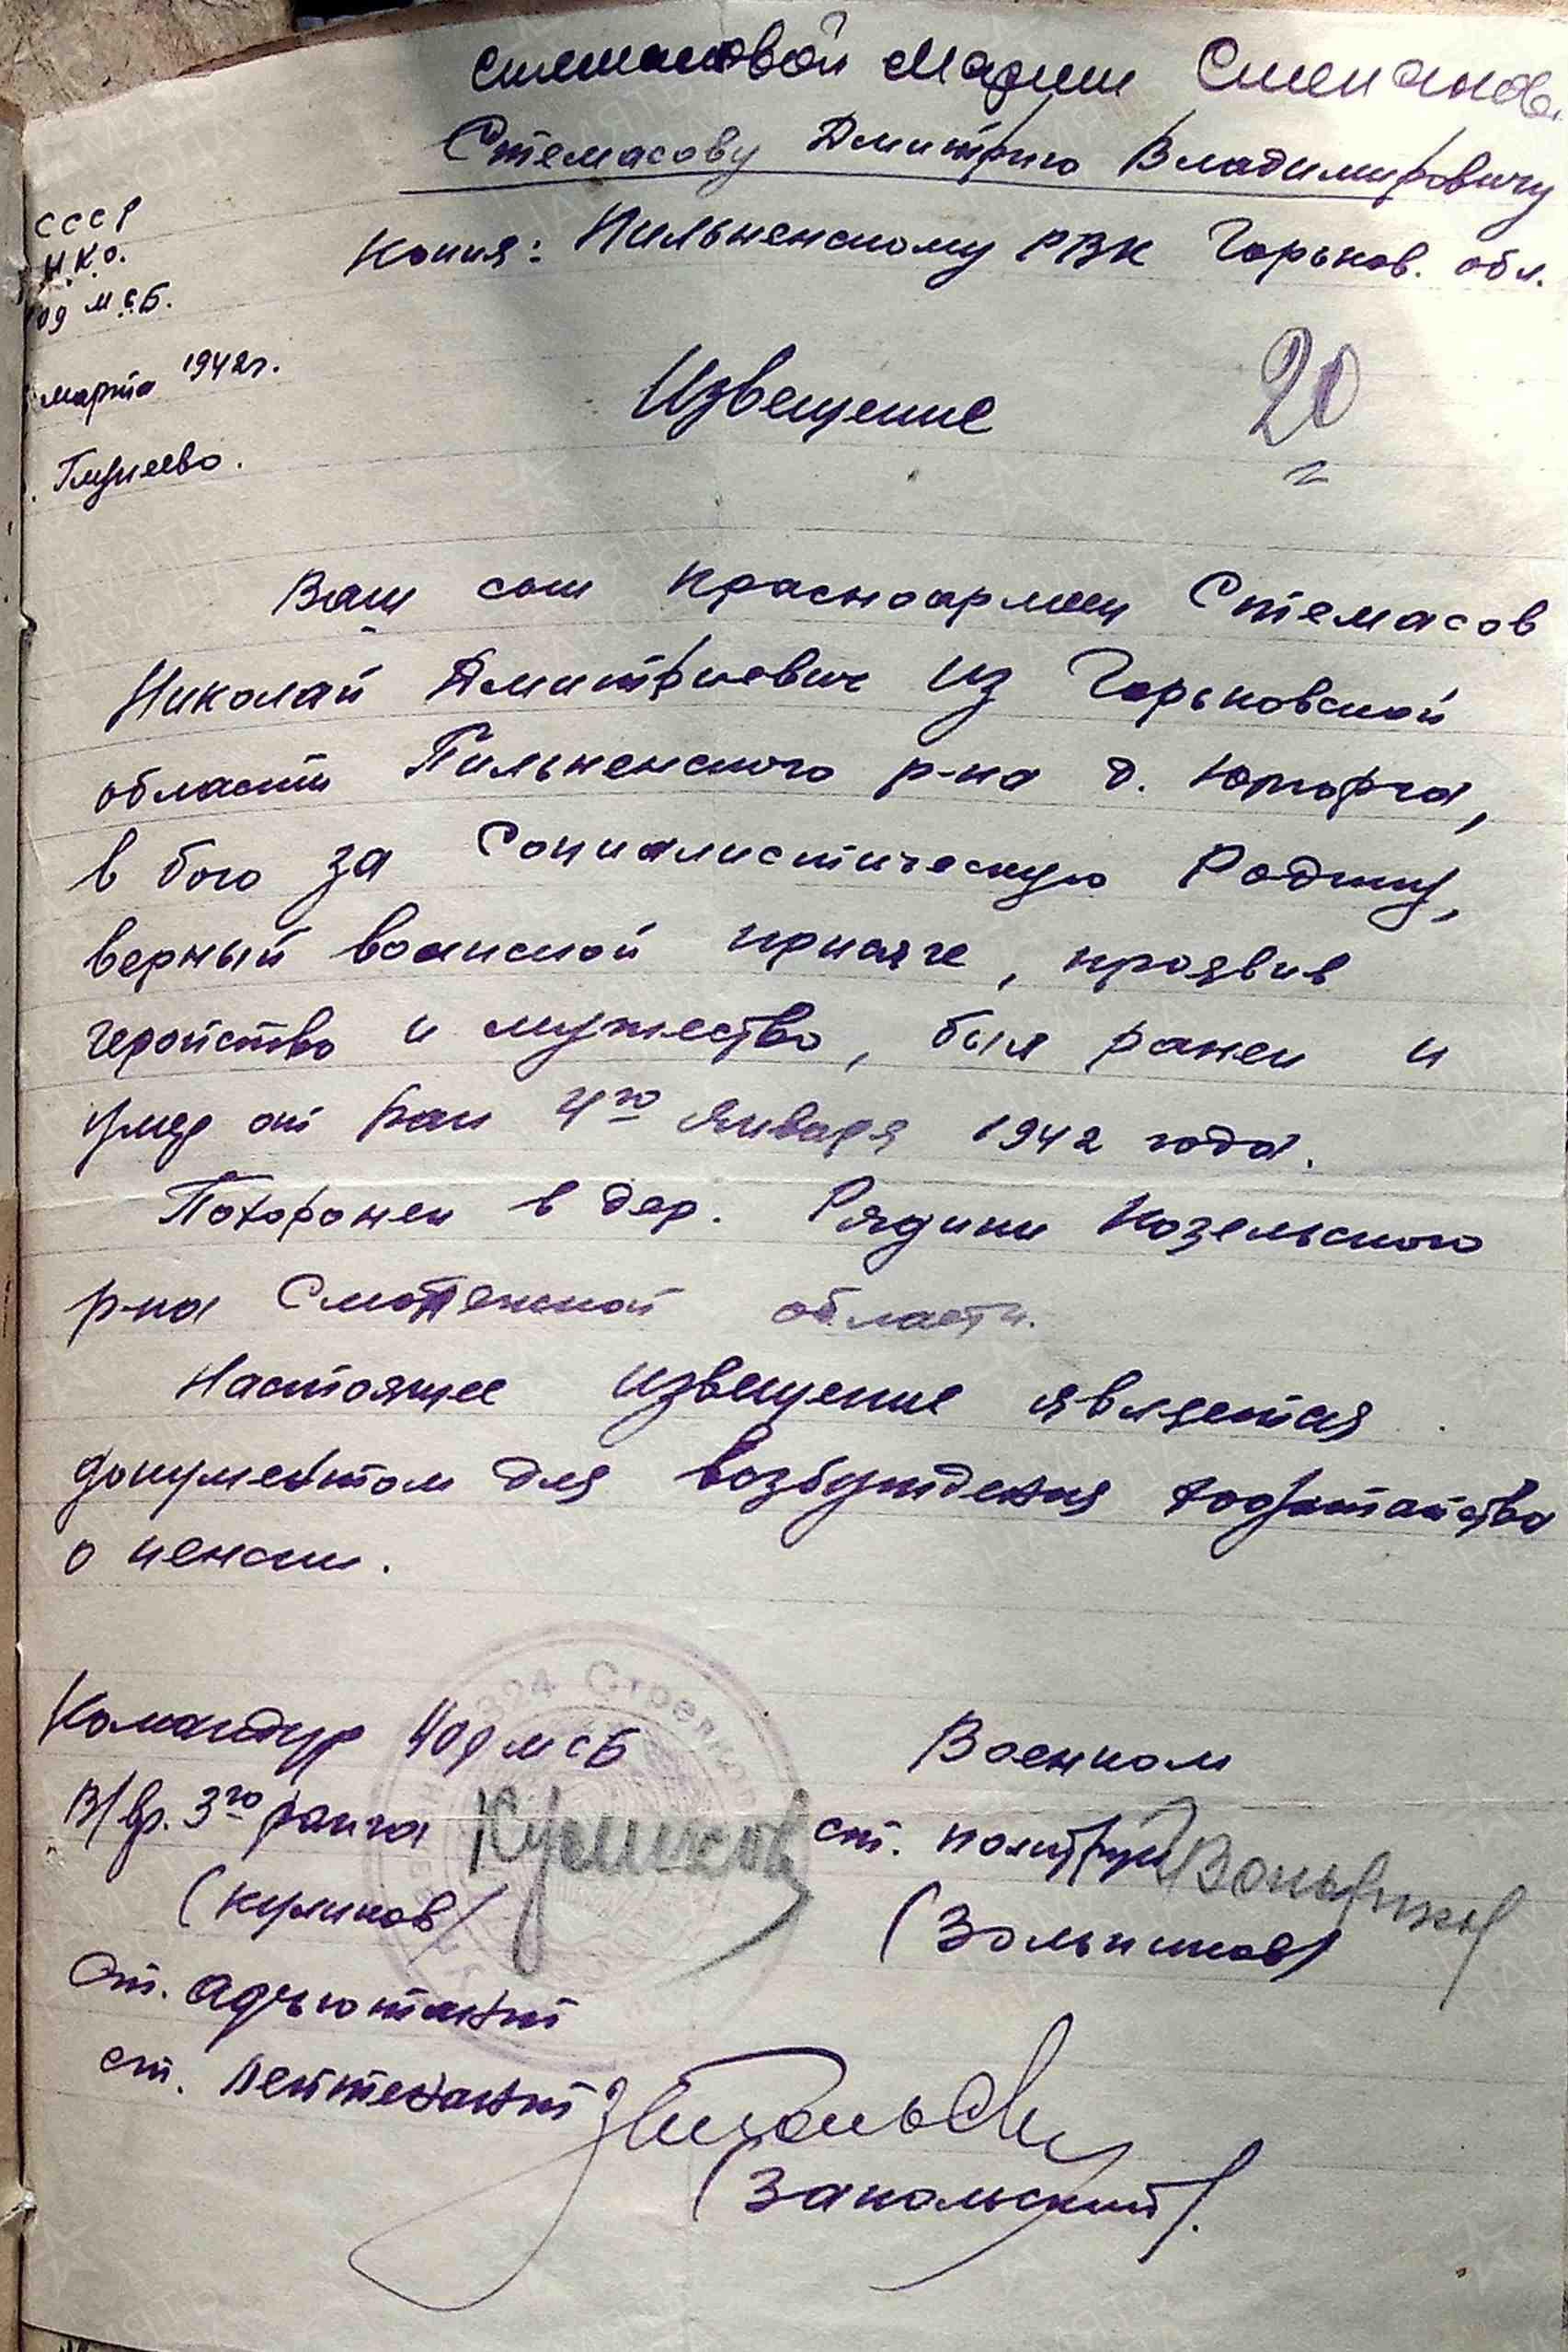 Стемасовой Марии Степанов.
Стемасову Дмитрию Владимировичу
Копия: Пильненскому РВК Горьков. обл.
СССР
Н.К.О.
09 МСБ.
марта 1942г.
Извещение
20
Ваш сын красноармеец Стемасов
Николай Дмитриевич из Горьковской
области Пильненского р-на д. Юморга,
в бою за Социалистическую Родину,
верный воинской присяге, проявив
геройство и мужество, был ранен и
умер от ран 4го января 1942 года.
Похоронен в дер. Рядики Козельского
р-на Смоленской области.
Настоящее извещение является
документом для возбуждения ходатайства
о пенсии.
Командир 409 МСБ
В/вр. 3го ранга
(Куликов)
Военком
ст. политрук
(Зольников)
Ст. адъютант
ст. лейтенант
(Запольский).
324 Стрелков